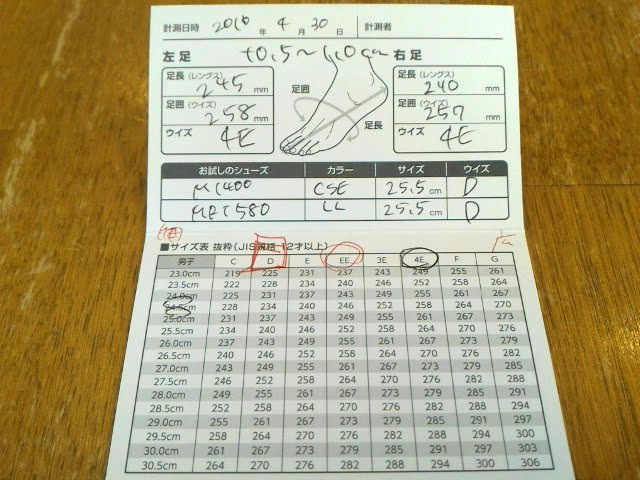 計測日時 2010 年 4 月 30 日 計測者
左足 +0.5〜1.0cm 右足
足長(レングス) 245 mm
足囲(ウイズ) 258 mm
ウイズ 4E
足囲
足長
足長(レングス) 240 mm
足囲(ウイズ) 257 mm
ウイズ 4E
お試しのシューズ カラー サイズ ウイズ
M1400 CSE 25.5 cm D
MET580 LL 25.5 cm D
■サイズ表 抜粋(JIS規格 12才以上)
男子 C D E EE 3E 4E F G
23.0cm 219 225 231 237 243 249 255 261
23.5cm 222 228 234 240 246 252 258 264
24.0cm 225 231 237 243 249 255 261 267
24.5cm 228 234 240 246 252 258 264 270
25.0cm 231 237 243 249 255 261 267 273
25.5cm 234 240 246 252 258 264 270 276
26.0cm 237 243 249 255 261 267 273 279
26.5cm 240 246 252 258 264 270 276 282
27.0cm 243 249 255 261 267 273 279 285
27.5cm 246 252 258 264 270 276 282 288
28.0cm 249 255 261 267 273 279 285 291
28.5cm 252 258 264 270 276 282 288 294
29.0cm 255 261 267 273 279 285 291 297
29.5cm 258 264 270 276 282 288 294 300
30.0cm 261 267 273 279 285 291 297 303
30.5cm 264 270 276 282 288 294 300 306